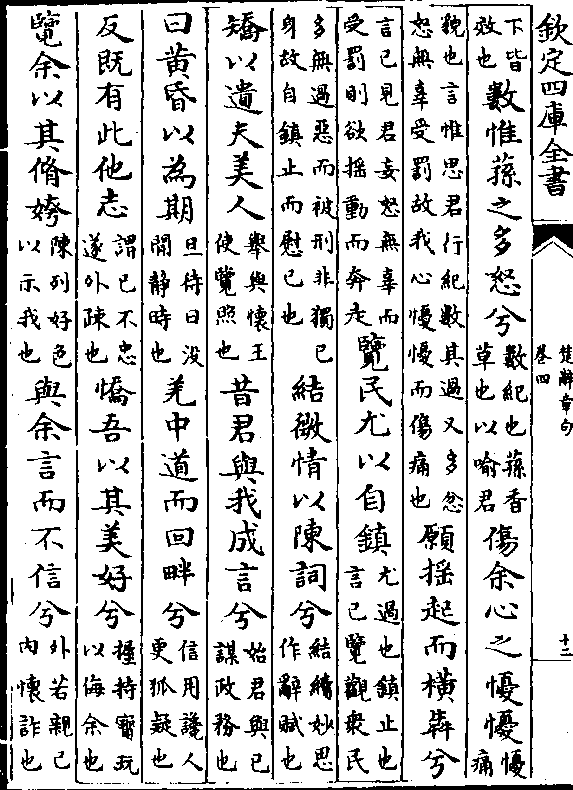 欽定四庫全書
楚辭章句
卷四
十二
下皆效也數惟蓀之多怒兮數紀也蓀香草也以喻君傷余心之懮懮懮痛
貌也言惟思君行紀數其過又多忿怒無辜受罰故我心懮懮而傷痛也願搖起而橫犇兮
言已見君妄怒無辜而受罰則欲搖動而奔走覽民尤以自鎮尤過也鎮止也言已覽觀衆民
多無過惡而被刑非獨已身故自鎮止而慰已也結微情以陳詞兮結續妙思作辭賦也
矯以遺夫美人舉與懷王使覽照也昔君與我成言兮始君與已謀政務也
曰黄昏以為期旦待日没閒靜時也羌中道而回畔兮信用讒人更狐疑也
反既有此他志謂已不忠遂外疎也憍吾以其美好兮握持寶玩以侮余也
覽余以其脩姱陳列好色以示我也與余言而不信兮外若親已內懷詐也